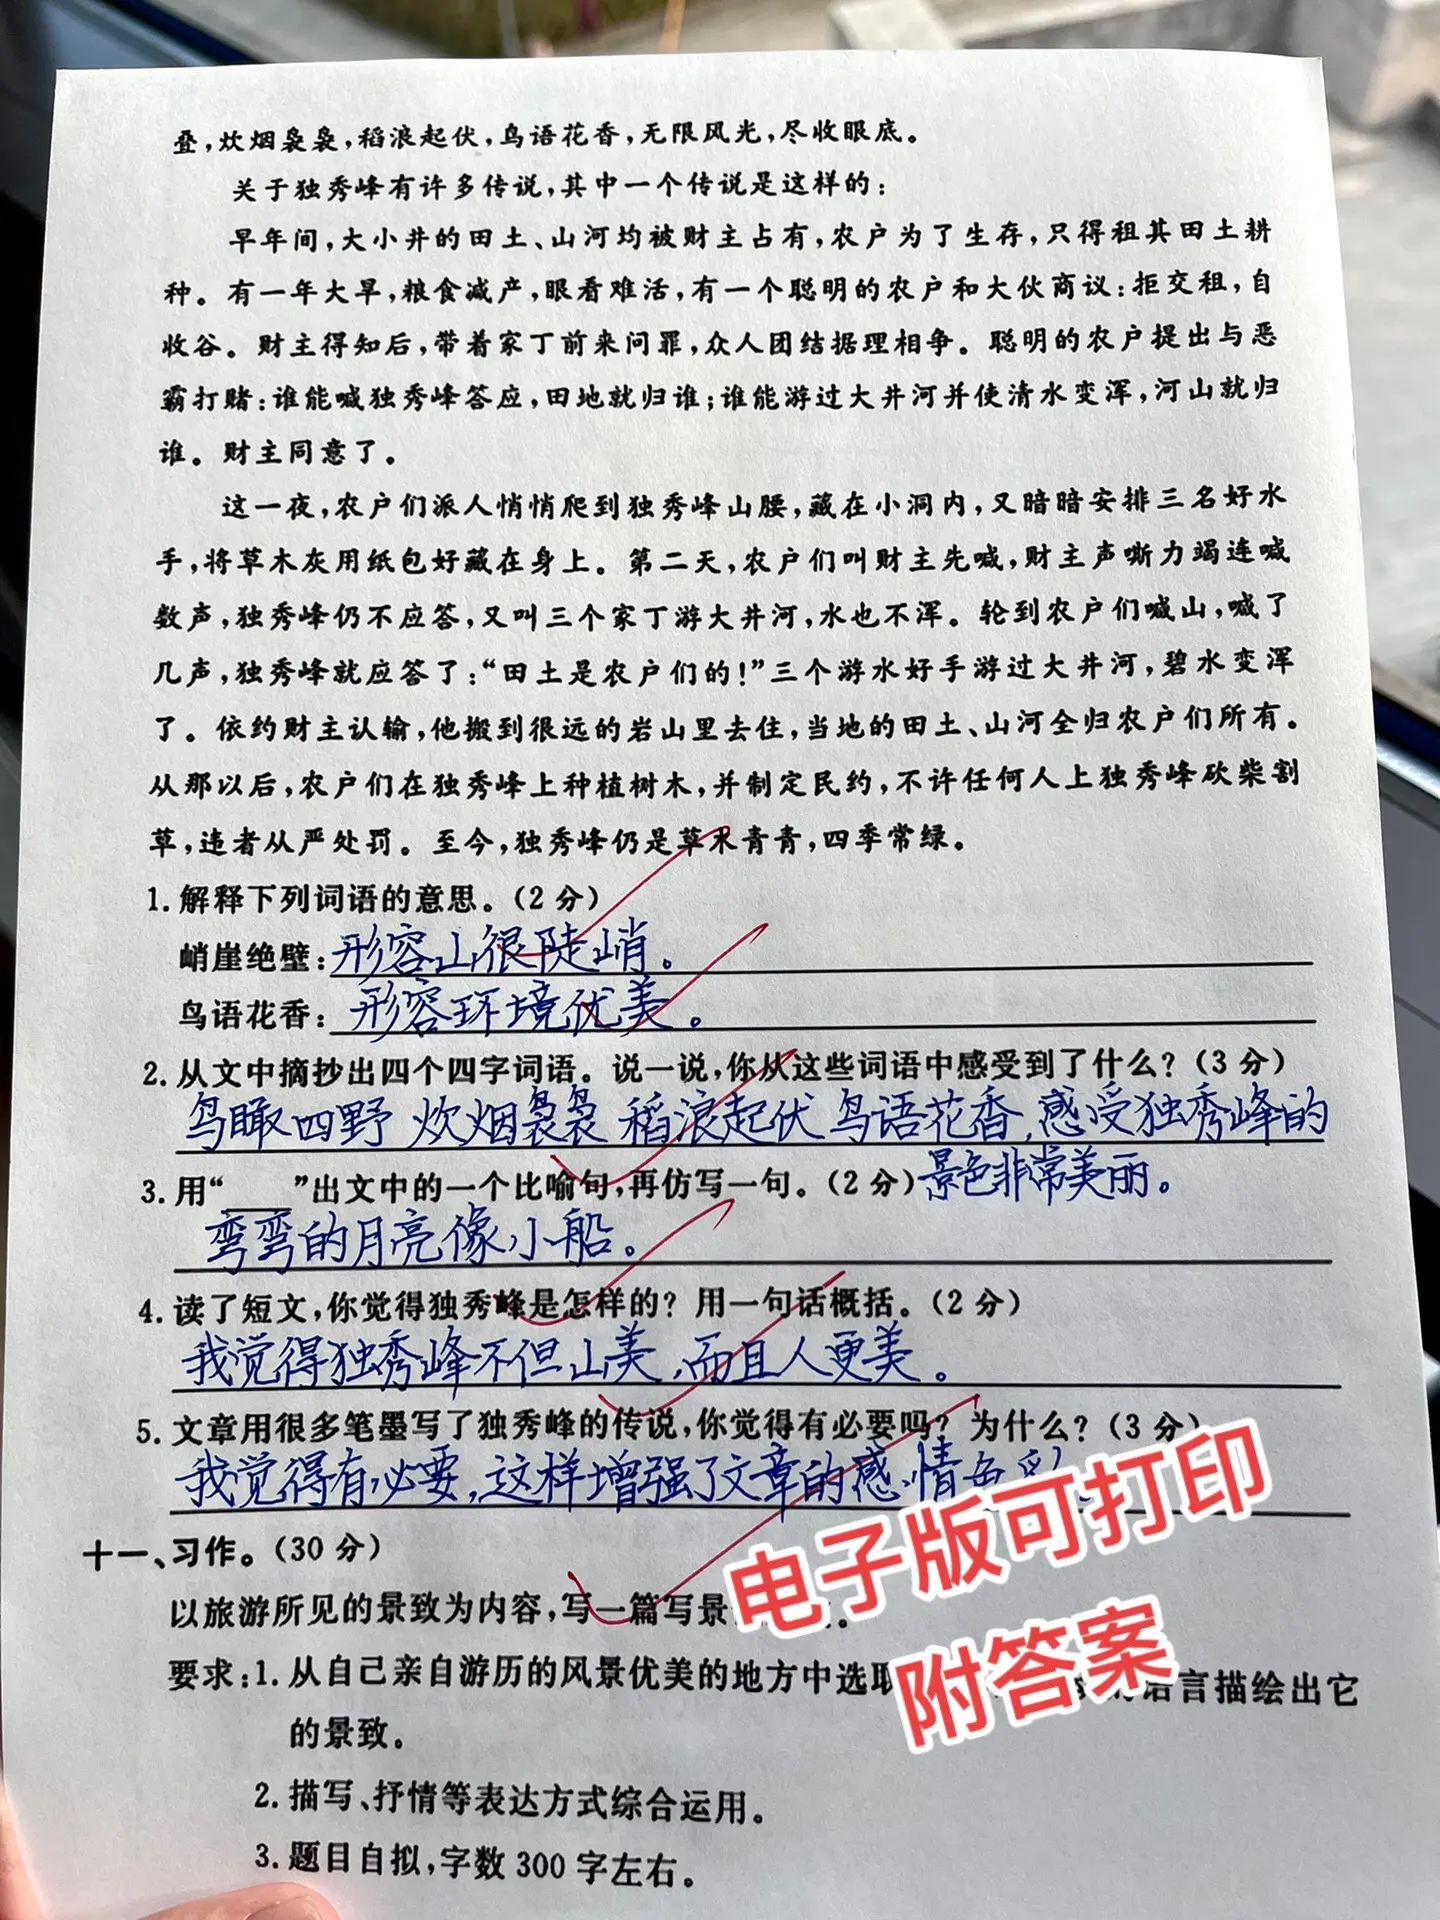 叠,炊烟袅袅,稻浪起伏,鸟语花香,无限风光,尽收眼底。
关于独秀峰有许多传说,其中一个传说是这样的:
早年间,大小井的田土、山河均被财主占有,农户为了生存,只得租其田土耕
种。有一年大旱,粮食减产,眼看难活,有一个聪明的农户和大伙商议:拒交租,自
收谷。财主得知后,带着家丁前来问罪,众人团结据理相争。聪明的农户提出与恶
霸打赌:谁能喊独秀峰答应,田地就归谁;谁能游过大井河并使清水变浑,河山就归
谁。财主同意了。
这一夜,农户们派人悄悄爬到独秀峰山腰,藏在小洞内,又暗暗安排三名好水
手,将草木灰用纸包好藏在身上。第二天,农户们叫财主先喊,财主声嘶力竭连喊
数声,独秀峰仍不应答,又叫三个家丁游大井河,水也不浑。轮到农户们喊山,喊了
几声,独秀峰就应答了:“田土是农户们的!”三个游水好手游过大井河,碧水变浑
了。依约财主认输,他搬到很远的岩山里去住,当地的田土、山河全归农户们所有。
从那以后,农户们在独秀峰上种植树木,并制定民约,不许任何人上独秀峰砍柴割
草,违者从严处罚。至今,独秀峰仍是草木青青,四季常绿。
1.解释下列词语的意思。(2分)
峭崖绝壁:形容山很陡峭。
鸟语花香:形容环境优美。
2.从文中摘抄出四个四字词语。说一说,你从这些词语中感受到了什么?(3分)
鸟瞰四野 炊烟袅袅 稻浪起伏 鸟语花香,感受独秀峰的
3.用“____”出文中的一个比喻句,再仿写一句。(2分)景色非常美丽。
弯弯的月亮像小船。
4.读了短文,你觉得独秀峰是怎样的?用一句话概括。(2分)
我觉得独秀峰不但山美,而且人更美。
5.文章用很多笔墨写了独秀峰的传说,你觉得有必要吗?为什么?(3分)
我觉得有必要,这样增强了文章的感情色彩
电子版可打印
附答案
十一、习作。(30分)
以旅游所见的景致为内容,写一篇写景
要求:1.从自己亲自游历的风景优美的地方中选取 语言描绘出它
的景致。
2.描写、抒情等表达方式综合运用。
3.题目自拟,字数300字左右。